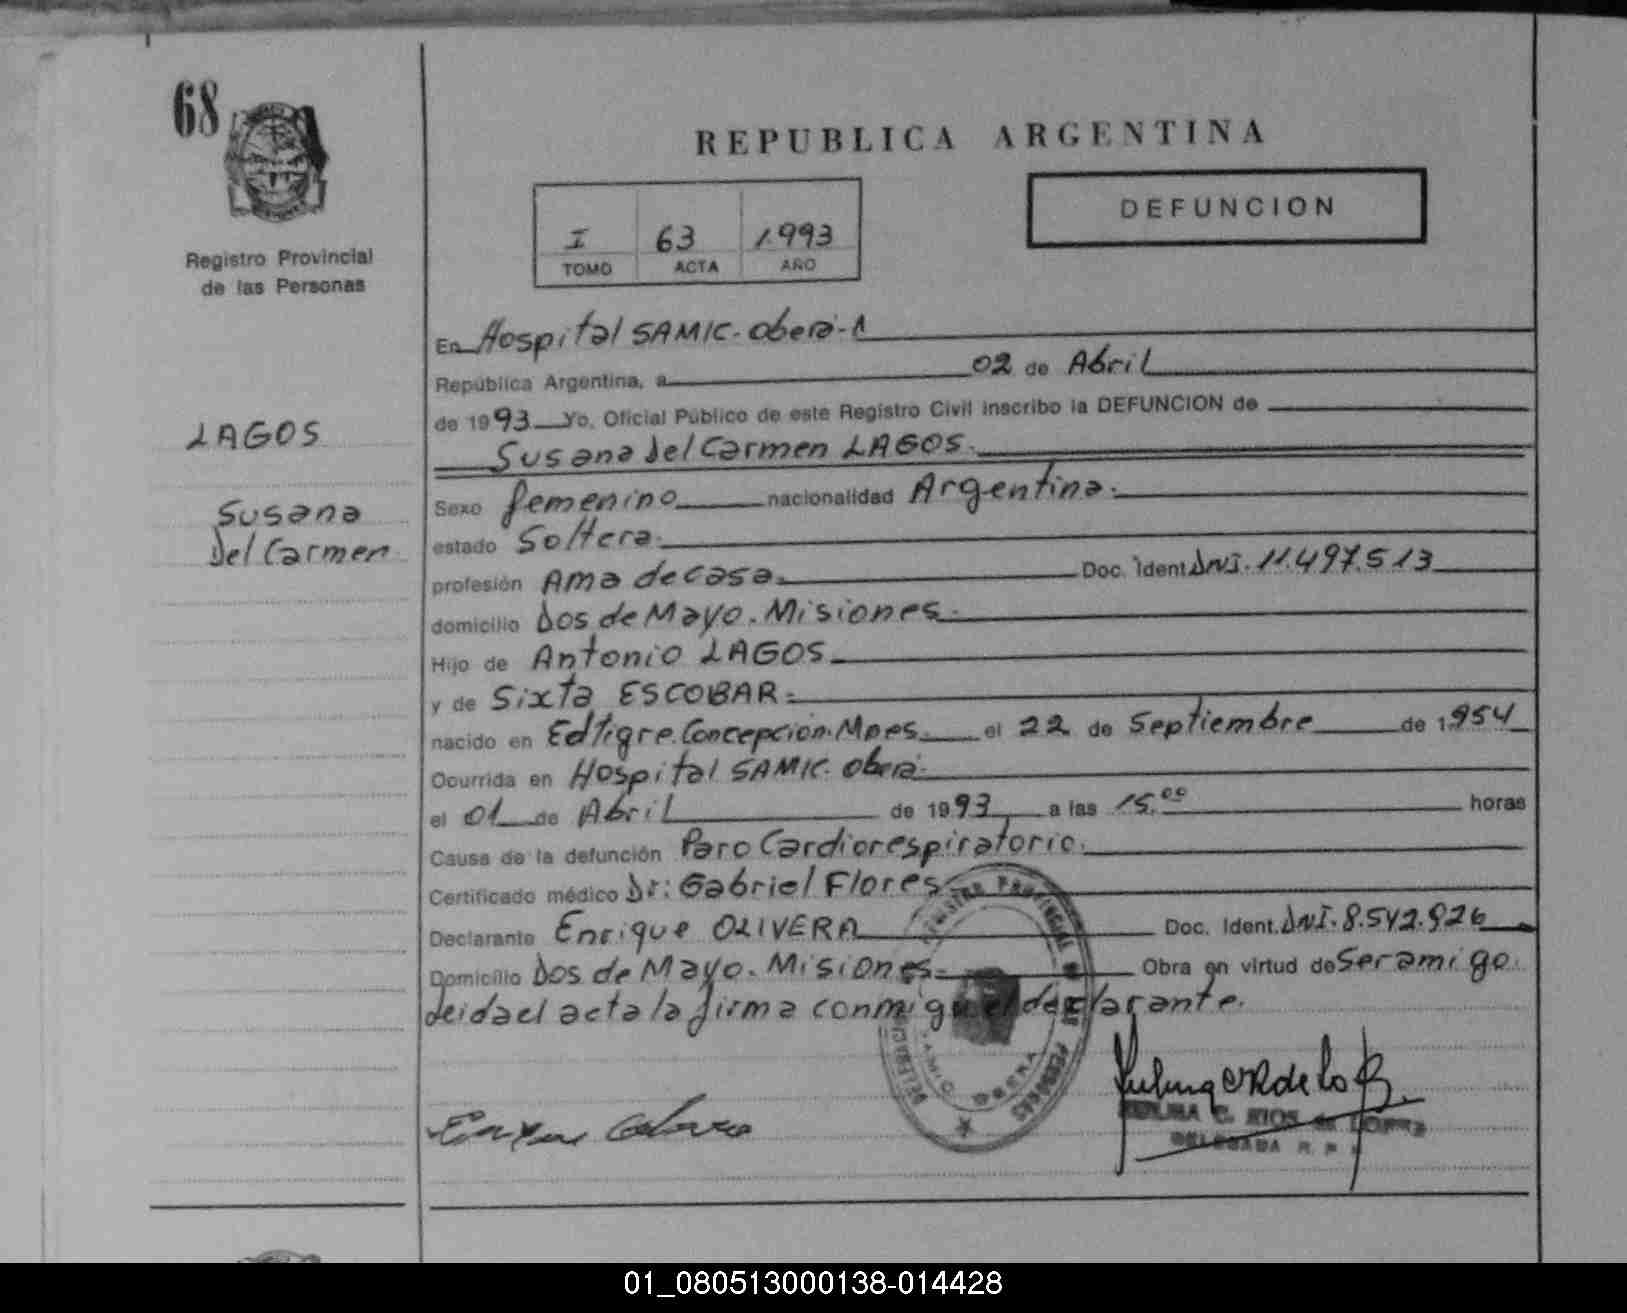 68
REPUBLICA ARGENTINA
DEFUNCION
I 63 1.993
TOMO ACTA AÑO
Registro Provincial
de las Personas
LAGOS
Susana
Del Carmen
En Hospital SAMIC. Oberá-
República Argentina, a 02 de Abril
de 1993 Yo, Oficial Público de este Registro Civil inscribo la DEFUNCION de
Susana Del Carmen LAGOS.
Sexo femenino nacionalidad Argentina.
estado Soltera.
profesión Ama de casa. Doc. Ident. DNI. 11.497.513
domicilio Dos de Mayo. Misiones.
Hijo de Antonio LAGOS
y de Sixta ESCOBAR.
nacido en Edtigre. Concepción. Mnes. el 22 de Septiembre de 1954
Ocurrida en Hospital SAMIC. Oberá.
el 01 de Abril de 1993 a las 15.00 horas
Causa de la defunción Paro Cardiorespiratorio.
Certificado médico Dr: Gabriel Flores
Declarante Enrique OLIVERA Doc. Ident. DNI. 8.542.926
Domicilio Dos de Mayo. Misiones. Obra en virtud de Ser amigo.
Leida el acta la firma conmigo el declarante.
OBERA
C. RIOS de LOPEZ
DELEGADA R. P.
01_080513000138-014428